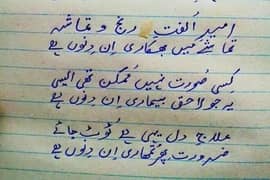 امیدِ اُلفت رنج و تماشہ
تماشے میں بھکاری اِن دنوں ہے
کسی صورت نہیں مُمکن تھی ایسی
یہ جو لاحق بیماری اِن دنوں ہے
علاجِ دل یہی ہے ٹُوٹ جائے
ضرورت پھر تمُھاری اِن دِنوں ہے